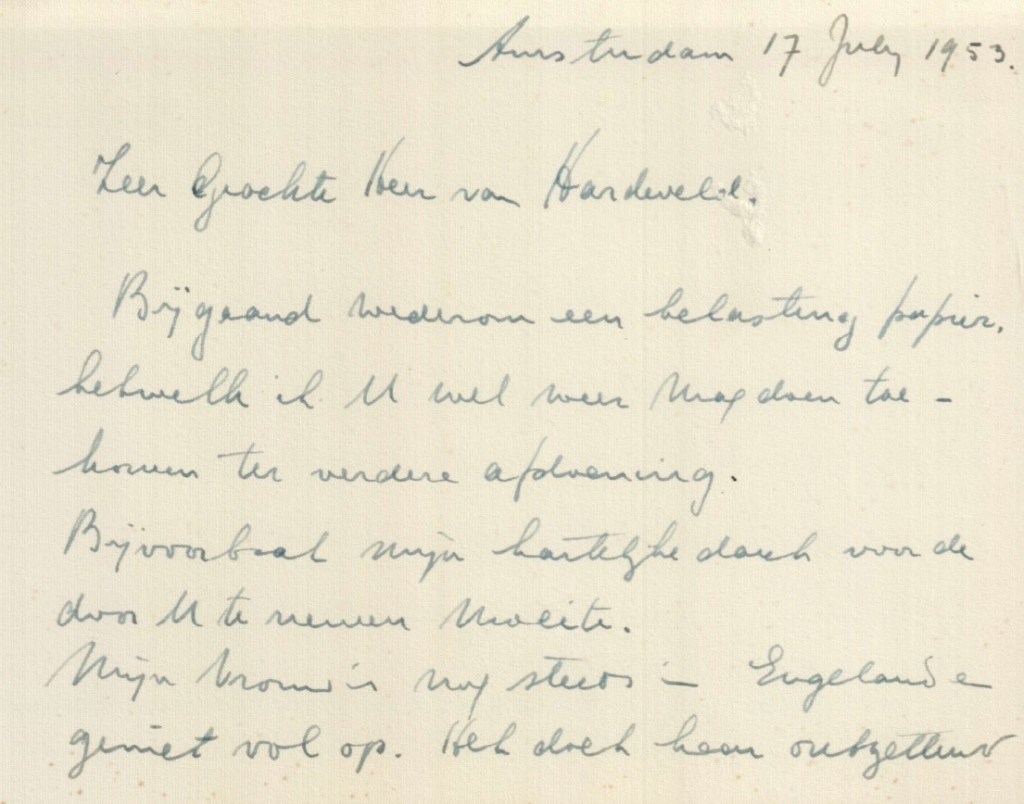 Amsterdam 17 July 1953.
Zeer Geachte Heer van Hardeveld.
Bijgaand wederom een belasting papier,
hetwelk ik U wel weer mag doen toe -
komen ter verdere afdoening.
Bijvoorbaat mijn hartelijke dank voor de
door U te nemen moeite.
Mijn vrouw is nog steeds in Engeland en
geniet volop. Het doet haar ontzettend